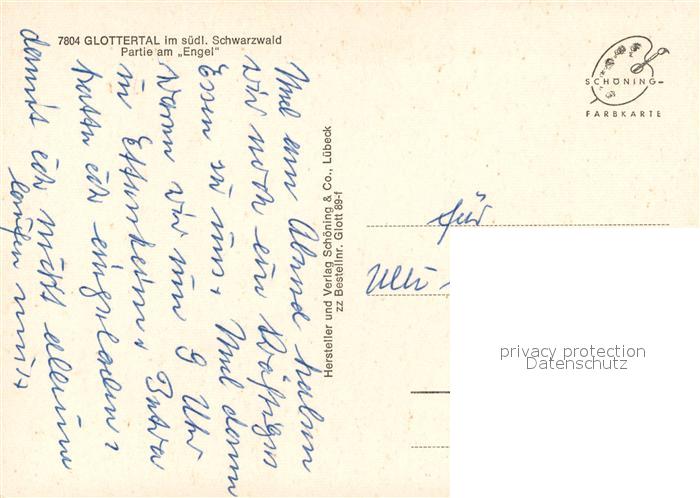 7804 GLOTTERTAL im südl. Schwarzwald
Partie am „Engel"
Und am Abend haben
wir noch ein kräftiges
Essen zu uns. Und dann
waren wir um 9 Uhr
in Ettenheim. Petra
hatte ich eingeladen,
damit ich nicht alleine
laufen muss.
Hersteller und Verlag Schöning & Co., Lübeck
zz Bestellnr. Glott 89-f
SCHÖNING-
FARBKARTE
für
Ulli
privacy protection
Datenschutz